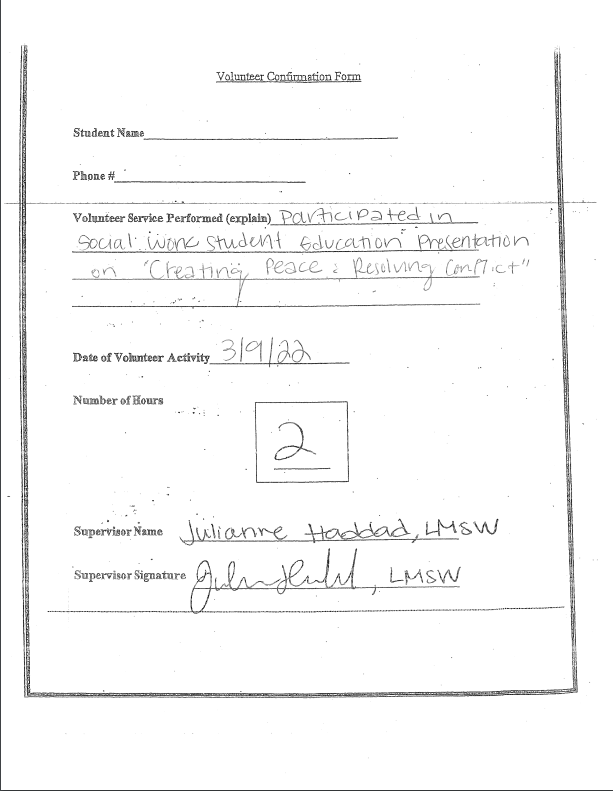 Volunteer Confirmation Form
Student Name
Phone #
Volunteer Service Performed (explain) Participated in
Social Work Student Education Presentation
on "Creating Peace & Resolving Conflict"
Date of Volunteer Activity 3/9/22
Number of Hours
2
Supervisor Name Julianne Haddad, LMSW
Supervisor Signature , LMSW